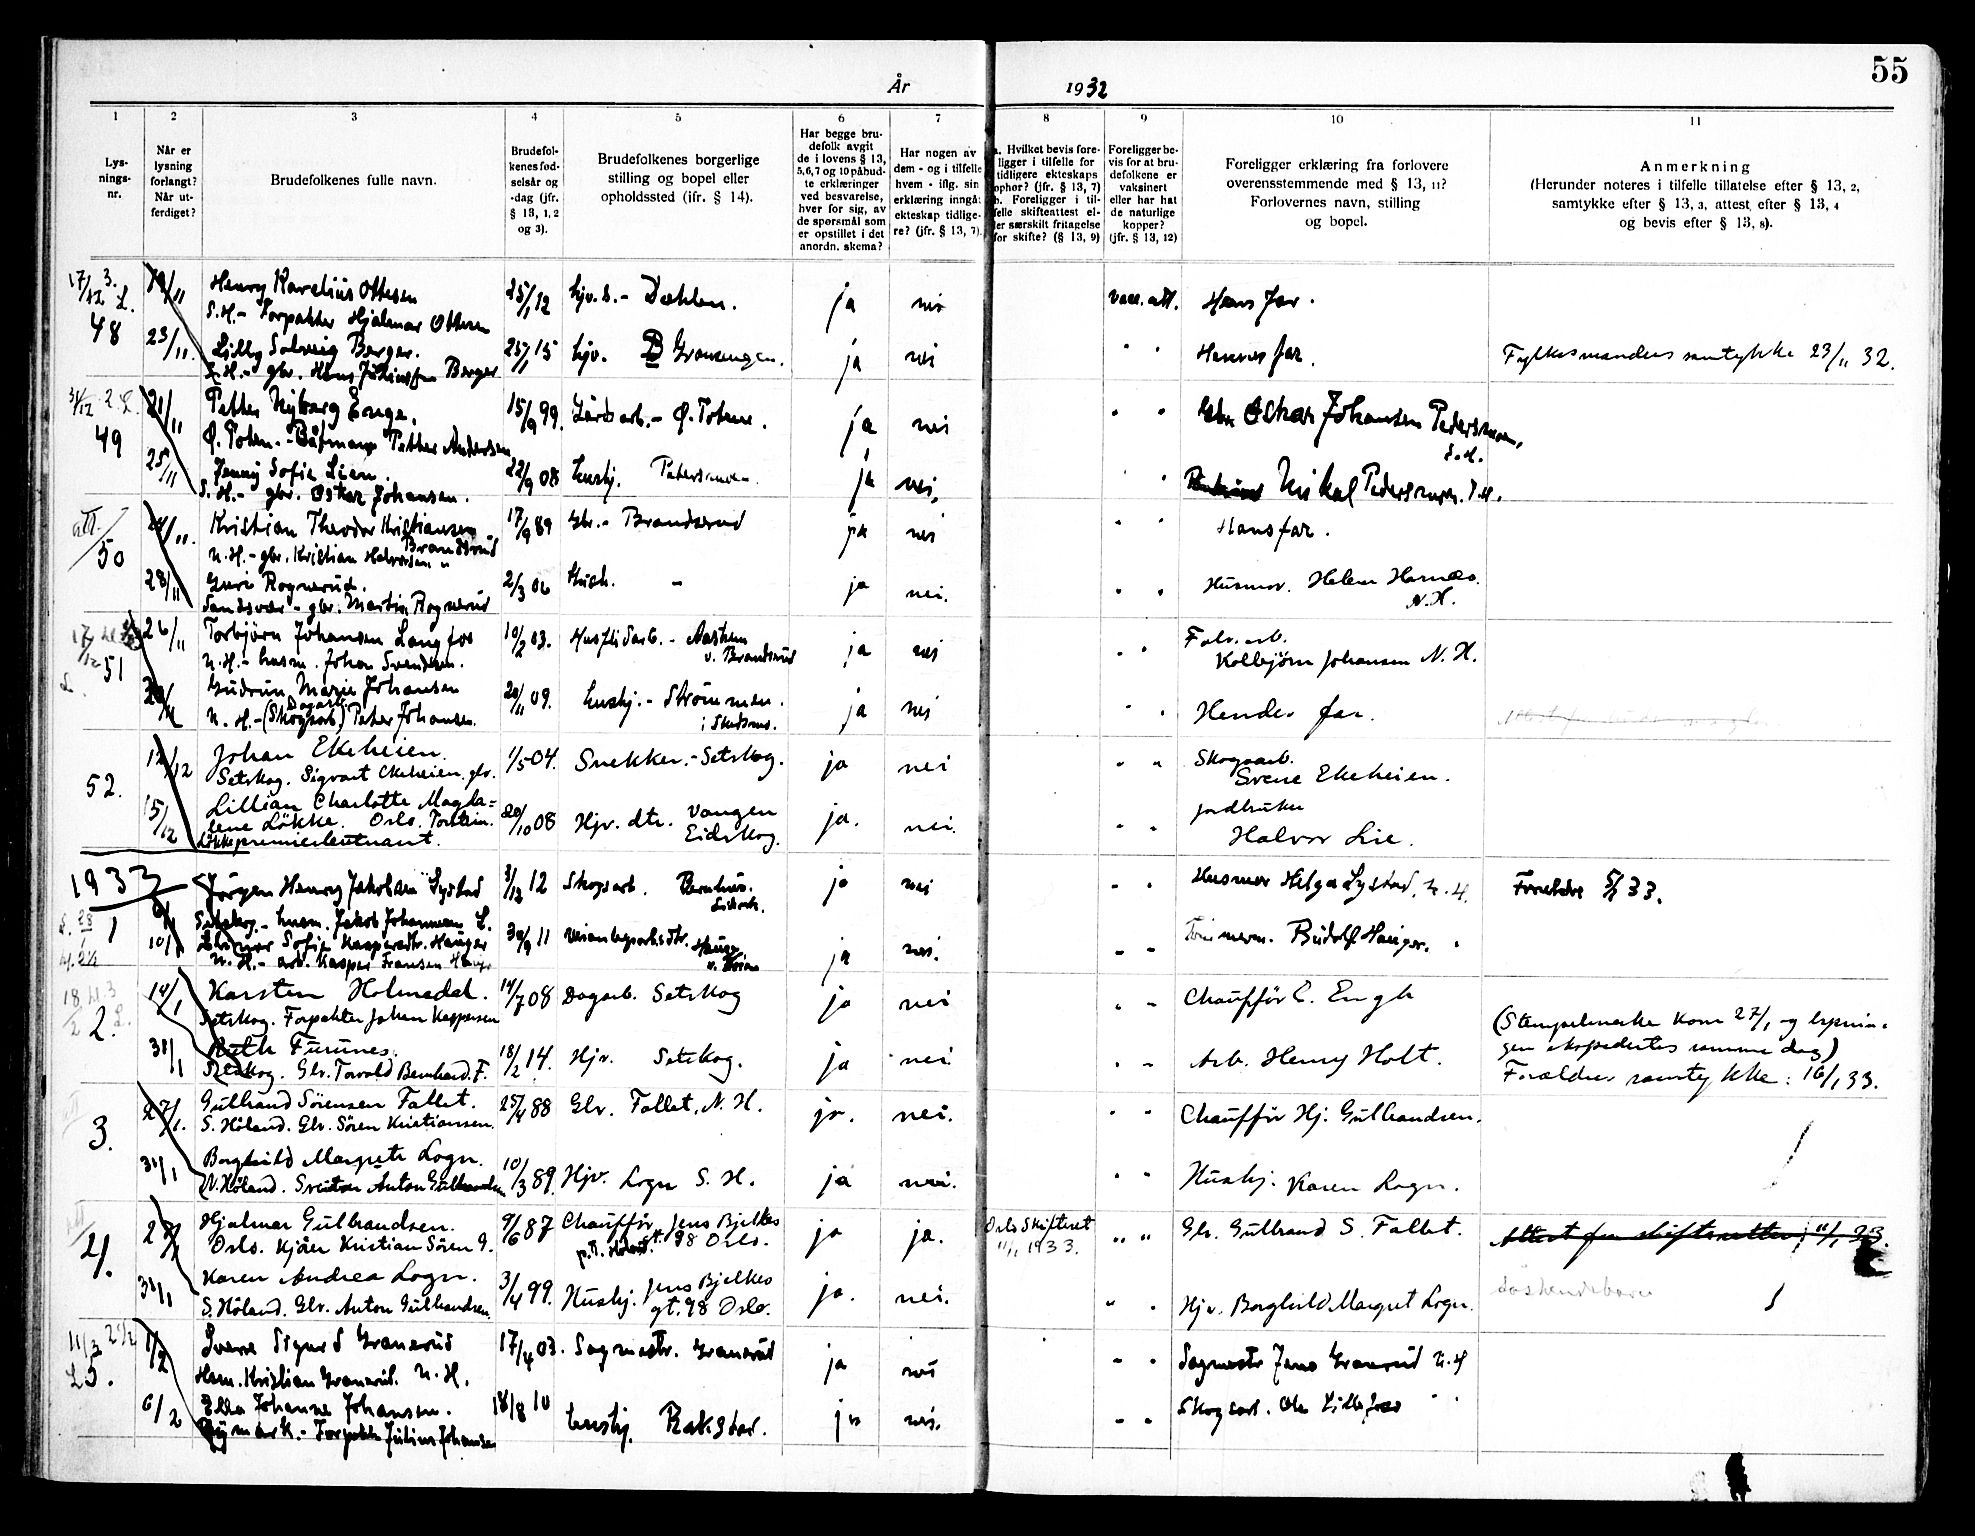 55
År 1932
1 2 3 4 5 6 7 8 9 10 11
Lys-
nings-
nr.
Når er
lysning
forlangt?
Når ut-
ferdiget?
Brudefolkenes fulle navn.
Brudefol-
kenes fød-
selsår og
-dag (jfr.
§ 13, 1, 2
og 3).
Brudefolkenes borgerlige
stilling og bopel eller
opholdssted (ifr. § 14).
Har begge bru-
defolk avgit
de i lovens § 13,
5,6,7 og 10 påbud-
te erklæringer
ved besvarelse,
hver for sig, av
de spørsmål som
er opstillet i det
anordn. skema?
Har nogen av
dem - og i tilfelle
hvem - iflg. sin
erklæring inngåt
ekteskap tidlige-
re? (jfr. § 13, 7).
a. Hvilket bevis fore-
ligger i tilfelle for
tidligere ekteskaps
ophør? (jfr. § 13, 7)
b. Foreligger i til-
felle skifteattest el-
ler særskilt fritagelse
for skifte? (§ 13, 9)
Foreligger be-
vis for at bru-
defolkene er
vaksinert
eller har hat
de naturlige
kopper?
(jfr. § 13, 12)
Foreligger erklæring fra forlovere
overensstemmende med § 13, 11?
Forlovernes navn, stilling
og bopel.
Anmerkning
(Herunder noteres i tilfelle tillatelse efter § 13, 2,
samtykke efter § 13, 3, attest efter § 13, 4
og bevis efter § 13, 8).
48 Henry Karelius Ottesen 25/1 12 hjv. s. - Dæhlen. ja nei vacc. att. Hans far.
S.H. - Forpakter Hjalmar Ottesen
23/11. Lilly Solveig Berger. 23/1 15 hjv. Granengen. ja nei " " Hennes far. Fylkesmandens samtykke 23/11 32.
S.H. - gbr. Hans Juliussen Berger
49 21/11 Petter Nyborg Enge. 15/9 99. Gårdsarb. - Ø. Toten. ja nei " " Gbr. Oskar Johansen Pedersmoen,
Ø. Toten. - Båtmann Petter Andersen S.H.
25/11 Jenny Sofie Lien. 22/9 08 hushj. Pedersmoen. ja nei. " " Nikal Pedersmoen. S.H.
S.H. - gbr. Oskar Johansen.
att.
50 24/11. Kristian Theodor Kristiansen 17/9 89 Gbr. - Brandsrud ja nei " " Hans far.
Brandsrud
N.H. - gbr. Kristian Halvorsen "
28/11 Guri Rognerud. 2/3 06 Hush. " ja nei. " " Husmor. Helen Harnæs.
Sandsvær - gbr. Martin Rognerud N.H.
51 26/11 Torbjörn Johansen Langfos 10/2 03. Husflidsarb. - Aashem ja nei " " Fabr. arb.
v. Brandsrud Kolbjörn Johansen N.H.
N.H. - husm. Johan Svendsen.
Gudrun Marie Johansen 20/11 09. hushj. - Strömmen. ja nei " " Hendes far.
N.H. - (Skogsarb.) Peter Johansen. i Skedsmo.
Dagarb.
52. 12/12 Johan Ekeheien. 1/5 04. Snekker. - Setskog. ja nei " " Skogsarb.
Setskog. Sigvart Ekeheien. gbr. Svene Ekeheien.
15/12 Lillian Charlotte Magda= 20/10 08 Hjv. dtr. Vangen ja. nei. " " jordbruker
lene Lökke. Oslo. Torstein. Eidskog. Halvor Lie.
Lökke premierløitnant.
1933
1 Jörgen Henry Jakobsen Lystad 3/12 12 Skogsarb. Bernhus. ja nei " " Husmor Helga Lystad, N.H. Foreldre 5/1 33.
Setskog. - husm. Jakob Johannesen L.
10/1 Sofie Kaspersdtr. Hauger 30/9 11 ja nei. " " Rudolf Hauger.
N.H. - arb. Kasper Fransen Hauger
2. 14/1 Karsten Holmedal. 14/7 08 Dagarb. Setskog ja nei " " Chaufför E. Engh
Setskog. Forpakter Johan Kaspersen
(Stempelmerke kom 27/1 og lysnin-
gen ekspedertes samme dag)
31/1 Ruth Furunes. 18/2 14. Hjv. Setskog. ja nei. " " Arb. Henry Holt. Forældres samtykke: 16/1 33.
Setskog. Gbr. Torvald Bernhard. F.
3. 27/1. Gulbrand Sörensen Fallet. 25/4 88 Gbr. Fallet, N.H. ja. nei. " " Chaufför Hj. Gulbrandsen.
S. Höland. Gbr. Sören Kristiansen.
31/1 Borghild Margrete Logn. 10/3 89. Hjv. Logn S.H. ja nei. " " Hushj. Karen Logn.
N. Höland. Anton Gulbrandsen
4. 27/1 Hjalmar Gulbrandsen. 9/6 87 Chauffør Jens Bjelkes ja ja. Oslo Skifteret " " Gbr. Gulbrand S. Fallet. Attest fra skifteretten 11/1 33.
Oslo. Kristian Sören G. gt. 98 Oslo. 11/1 1933.
31/1 Karen Andrea Logn. 3/4 99. Hushj. Jens Bjelkes ja. nei. " " Hjv. Borghild Margret Logn. Söskendebarn
S. Höland. Gbr. Anton Gulbrandsen gt. 98 Oslo.
5. 1/2 Sverre Sigurd Granerud 17/4 03. Sagmestr. Granerud ja nei " " Sagmestr Jens Granerud N.H
Hem. Kristian Granerud. N.H.
6/2 Ella Johanne Johansen. 18/8 10 hushj. Rakstad. ja nei. " " Skogsarb. Ole Lillefoss " "
Rymark. - Forpakter Julius Johansen